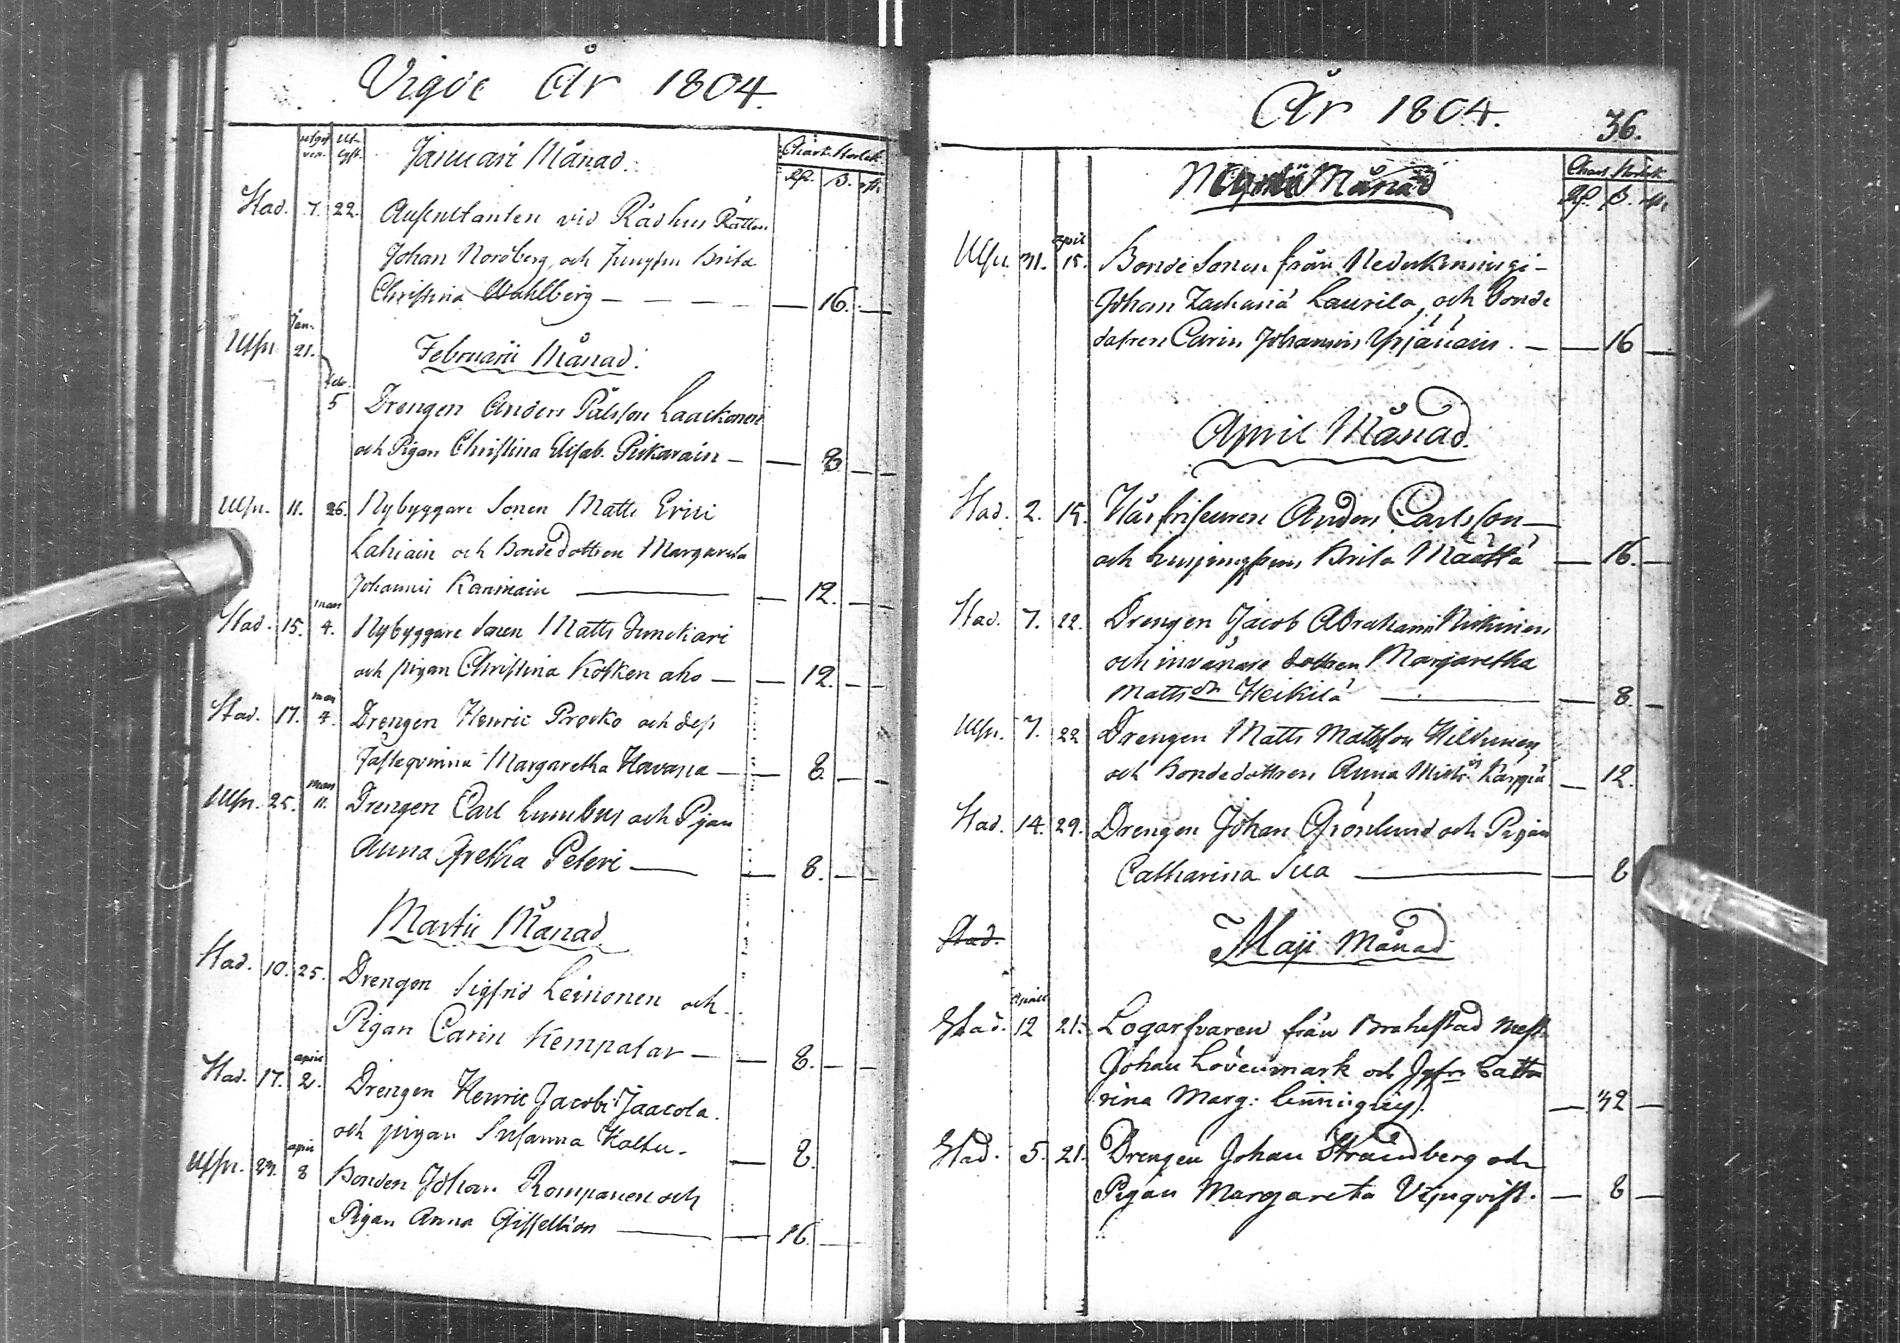 Vigde År 1804.
Januari Månad.
Chart. Storlek
Rd. ß. rst.
Stad. 7. 22. Auscultanten vid Rådhus Rätten
Johan Nordberg, och Jungfru Brita
Christina Wahlberg — 16. —
Utsn. Jan. 21.
Februarii Månad.
febr. 5 Drengen Anders Pålsson Laackonen
och Pigan Christina Elisab. Pikarain — 8 —
Utsn. 11. 26. Nybyggare Sonen Matts Erici
Lahiain och Bonde dottren Margareta
Johannis Karinain — 12. —
Stad. 15. mars 4. Nybyggare Sonen Matts Junckari
och pigan Christina Kofken aho — 12. —
Stad. 17. mars 4. Drengen Henric Provko och dess
Fästeqvinna Margaretha Havana — 8. —
Utsn. 25. mars 11. Drengen Carl Lumbus och Pigan
Anna Gretha Peteri — 8. —
Martii Månad
Stad. 10. 25. Drengen Sigfrid Leinonen och
Pigan Carin Kempatar — 8. —
Stad. 17. april 2. Drengen Henric Jacobi Jaacola.
och pigan Susanna Kaltu. — 8.
Utsn. april 8 Bonden Johan Rompanen och
Pigan Anna — 16. —
År 1804. 36.
Månad
Chart. Storlek
Rd. ß. rst.
Utsn. 31. april 15. Bonde Sonen från
Johan Zacharia Laurila, och bonde
dotren Carin Johannis — 16 —
April Månad.
Stad. 2. 15. Hårfriseuren Anders Carlsson
och husjungfrun Brita Määttä — 16. —
Stad. 7. 22. Drengen Jacob Abrahams
och invånare dottren Margaretha
Mattsdr Heikilä — 8. —
Utsn. 7. 22 Drengen Matts Mattsson Hildunen
och Bondedottren Anna — 12.
Stad. 14. 29. Drengen Johan Grönlund och Pigan
Catharina Sua — 8
Stad.
Maji Månad
Stad. April 12 21. Logarfvaren från Brahestad Mest.
Johan Lövenmark och Jgfr. Catha
rina Marg: — 32 —
Stad. 5. 21. Drengen Johan Strandberg och
Pigan Margareta — 8 —